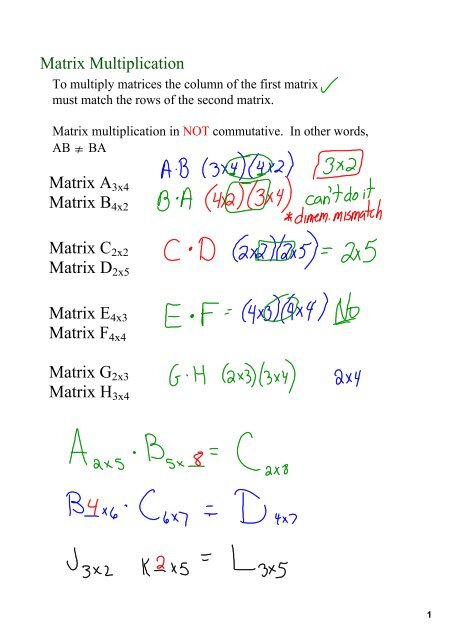 Matrix Multiplication
To multiply matrices the column of the first matrix ✓
must match the rows of the second matrix.
Matrix multiplication in NOT commutative. In other words,
AB ≠ BA
A·B (3x4)(4x2) 3x2
Matrix A3x4
Matrix B4x2 B·A (4x2)(3x4) can't do it
*dimem. mismatch
Matrix C2x2 C·D (2x2)(2x5) = 2x5
Matrix D2x5
Matrix E4x3 E·F = (4x3)(4x4) No
Matrix F4x4
Matrix G2x3 G·H (2x3)(3x4) 2x4
Matrix H3x4
A2x5 · B5x8 = C2x8
B4x6 · C6x7 = D4x7
J3x2 K2x5 = L3x5
1